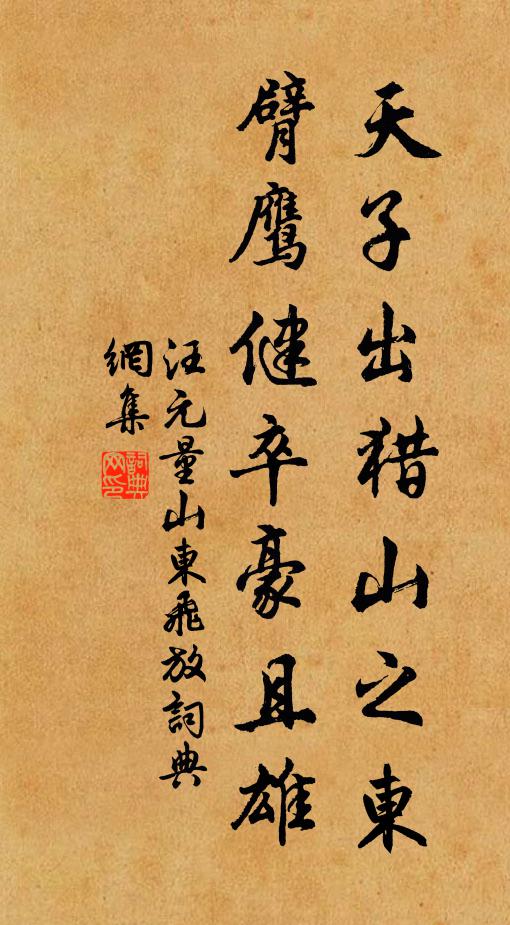 天子出猎山之東
臂鹰健卒豪且雄
汪元量山東飛放詞典
網集
詞典
网印